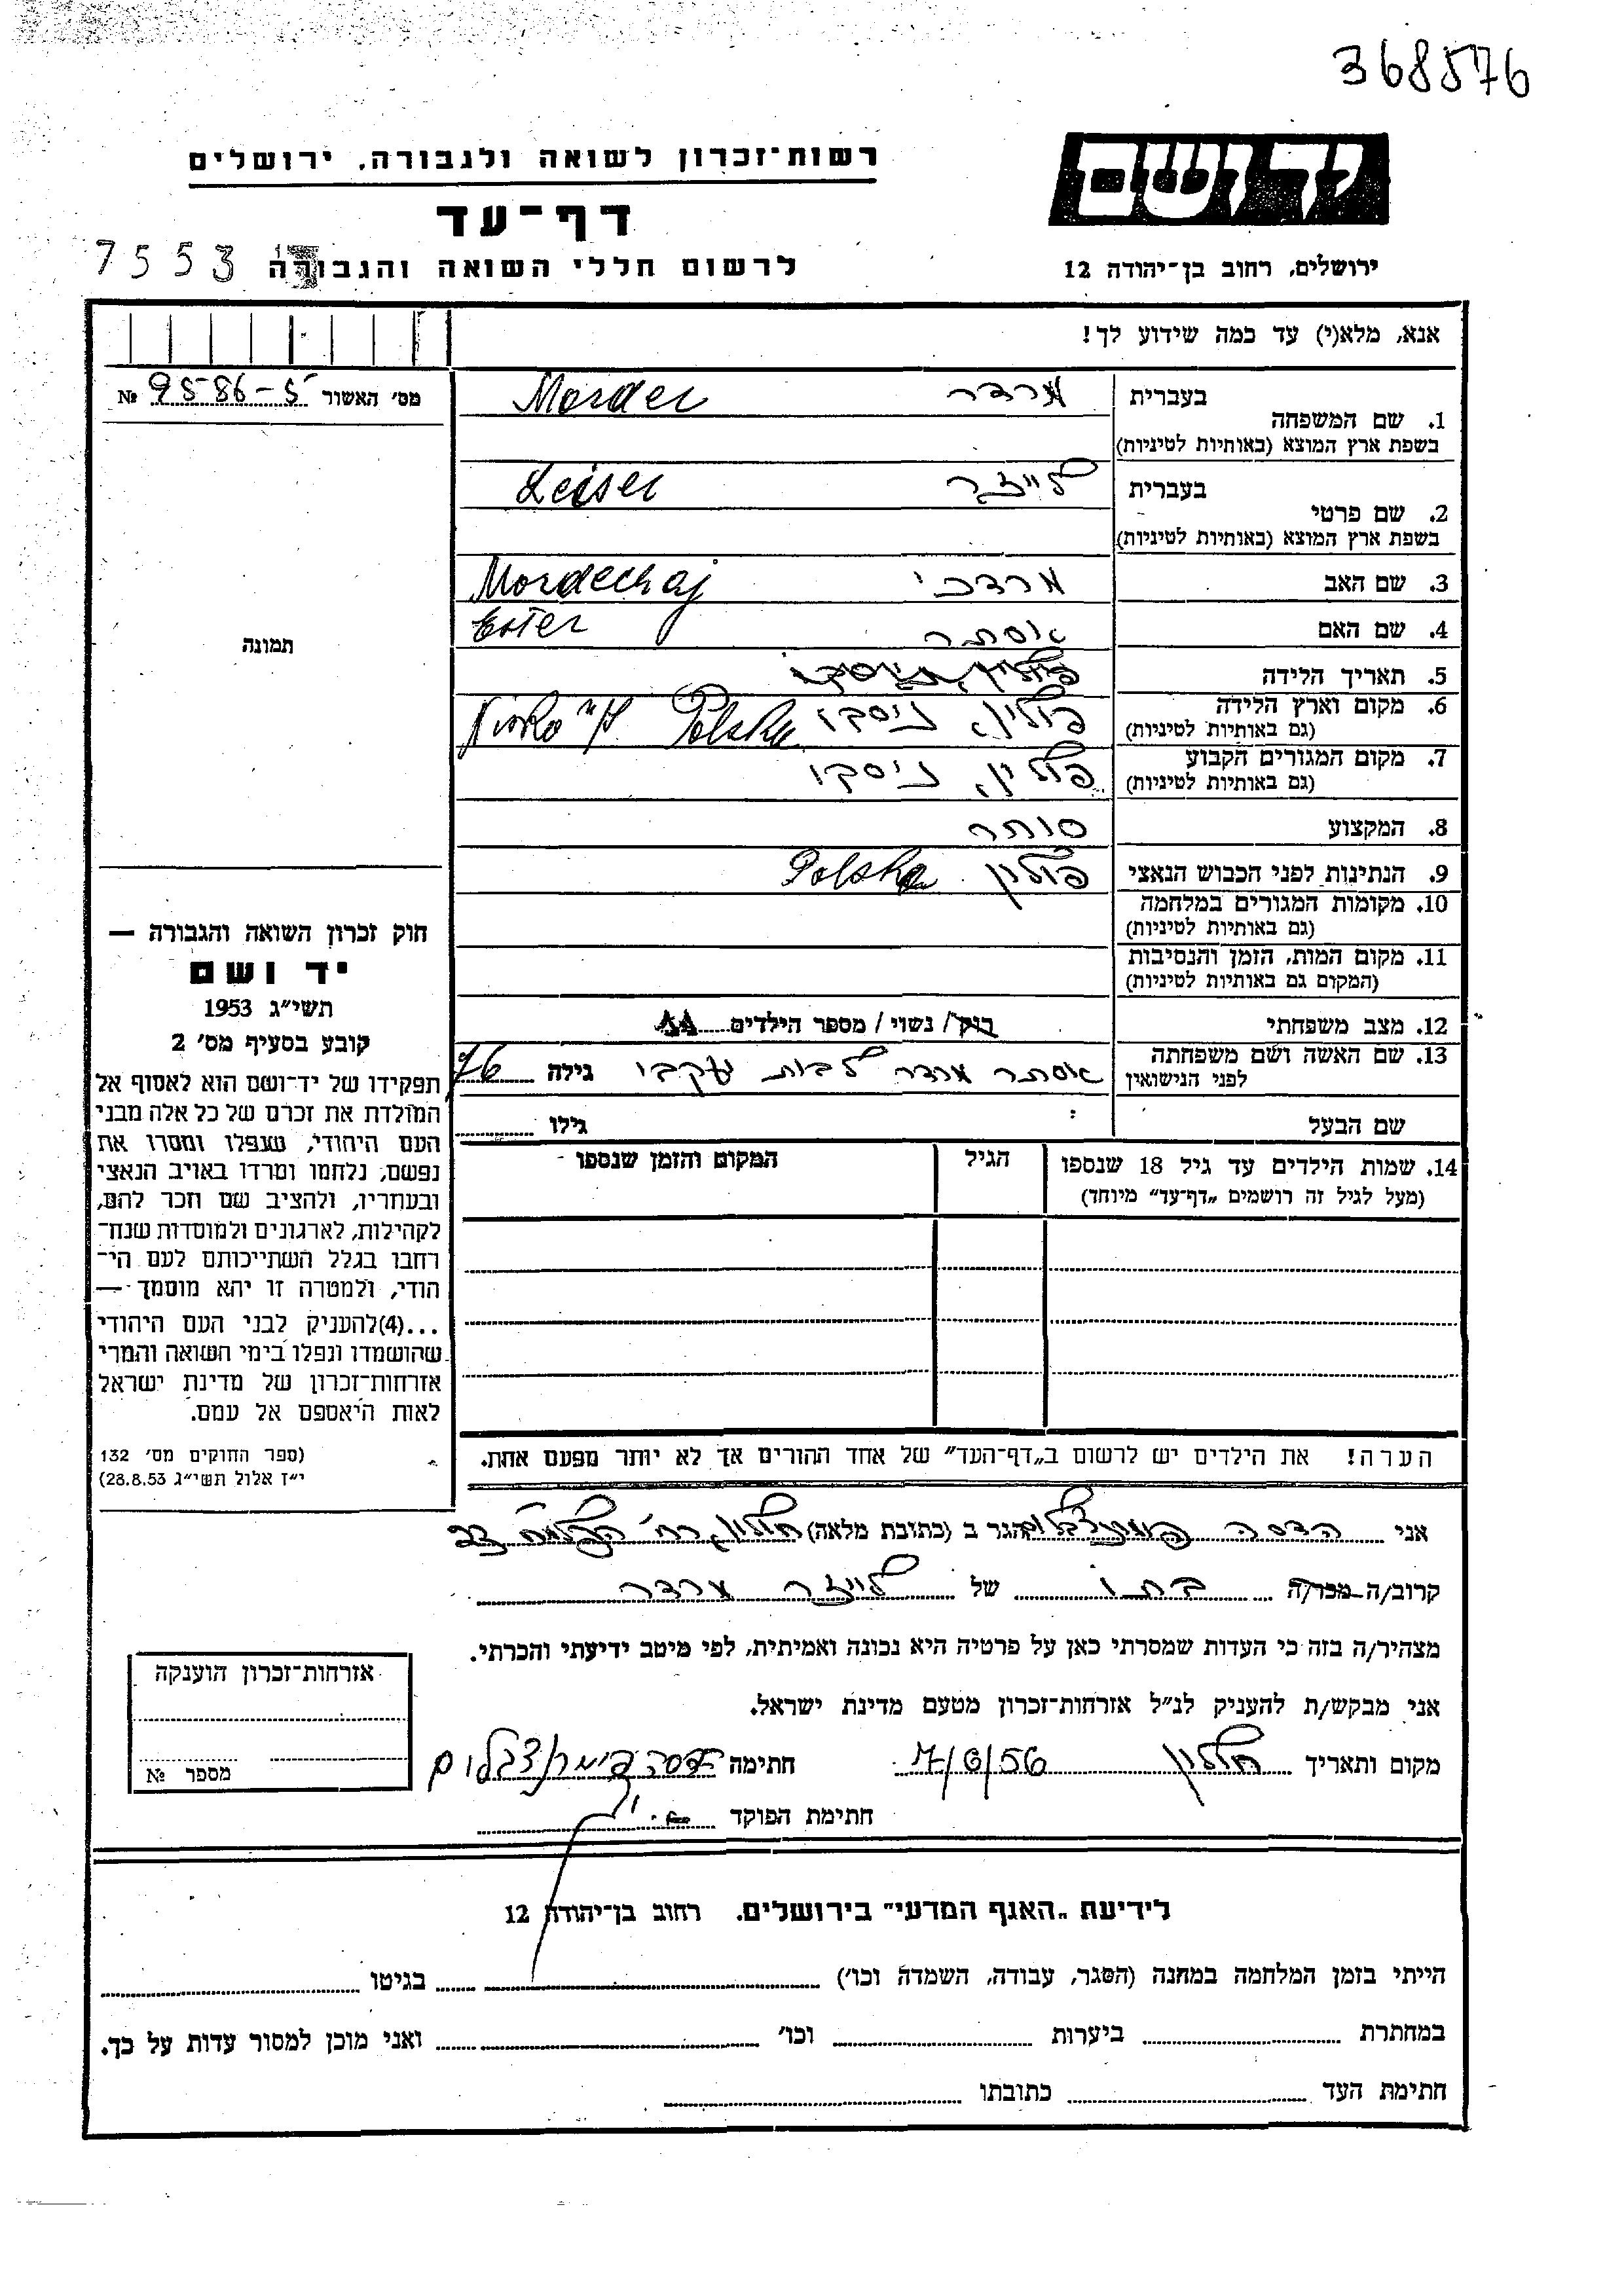 368576
רשות־זכרון לשואה ולגבורה, ירושלים
יד ושם
דף־עד
לרשום חללי השואה והגבורה
7553
ירושלים, רחוב בן־יהודה 12
אנא, מלא(י) עד כמה שידוע לך!
מס׳ האשור 9586-5 №
תמונה
1. שם המשפחה
בעברית מרדר Morder
בשפת ארץ המוצא (באותיות לטיניות)
2. שם פרטי
בעברית לייזר Leiser
בשפת ארץ המוצא (באותיות לטיניות)
3. שם האב מרדכי Mordechaj
4. שם האם אסתר Ester
5. תאריך הלידה
6. מקום וארץ הלידה פולין, ניסקו Nisko n/S Polska
(גם באותיות לטיניות)
7. מקום המגורים הקבוע פולין, ניסקו
(גם באותיות לטיניות)
8. המקצוע סוחר
9. הנתינות לפני הכבוש הנאצי פולין Polska
10. מקומות המגורים במלחמה
(גם באותיות לטיניות)
11. מקום המות, הזמן והנסיבות
(המקום גם באותיות לטיניות)
12. מצב משפחתי רוק/ נשוי/ מספר הילדים
13. שם האשה ושם משפחתה אסתר מרדר לבית גילה 76
לפני הנישואין
שם הבעל גילו
14. שמות הילדים עד גיל 18 שנספו הגיל המקום והזמן שנספו
(מעל לגיל זה רושמים „דף־עד״ מיוחד)
הערה! את הילדים יש לרשום ב„דף־העד״ של אחד ההורים אך לא יותר מפעם אחת.
חוק זכרון השואה והגבורה —
יד ושם
תשי״ג 1953
קובע בסעיף מס׳ 2
תפקידו של יד־ושם הוא לאסוף אל
המולדת את זכרם של כל אלה מבני
העם היהודי, שנפלו ומסרו את
נפשם, נלחמו ומרדו באויב הנאצי
ובעוזריו, ולהציב שם וזכר להם,
לקהילות, לארגונים ולמוסדות שנח־
רבו בגלל השתייכותם לעם הי־
הודי, ולמטרה זו יהא מוסמך —
...(4) להעניק לבני העם היהודי
שהושמדו ונפלו בימי השואה והמרי
אזרחות־זכרון של מדינת ישראל
לאות היאספם אל עמם.
(ספר החוקים מס׳ 132
י״ז אלול תשי״ג 28.8.53)
אני הדסה הגר ב (כתובת מלאה) חולון, רח׳
קרוב/ה מכר/ה בתו של לייזר מרדר
מצהיר/ה בזה כי העדות שמסרתי כאן על פרטיה היא נכונה ואמיתית, לפי מיטב ידיעתי והכרתי.
אני מבקש/ת להעניק לנ״ל אזרחות־זכרון מטעם מדינת ישראל.
מקום ותאריך חולון 7/6/56 חתימה הדסה
חתימת הפוקד
אזרחות־זכרון הוענקה
מספר №
לידיעת „האגף המדעי״ בירושלים, רחוב בן־יהודה 12
הייתי בזמן המלחמה במחנה (הסגר, עבודה, השמדה וכו׳) בגיטו
במחתרת ביערות וכו׳ ואני מוכן למסור עדות על כך.
חתימת העד כתובתו